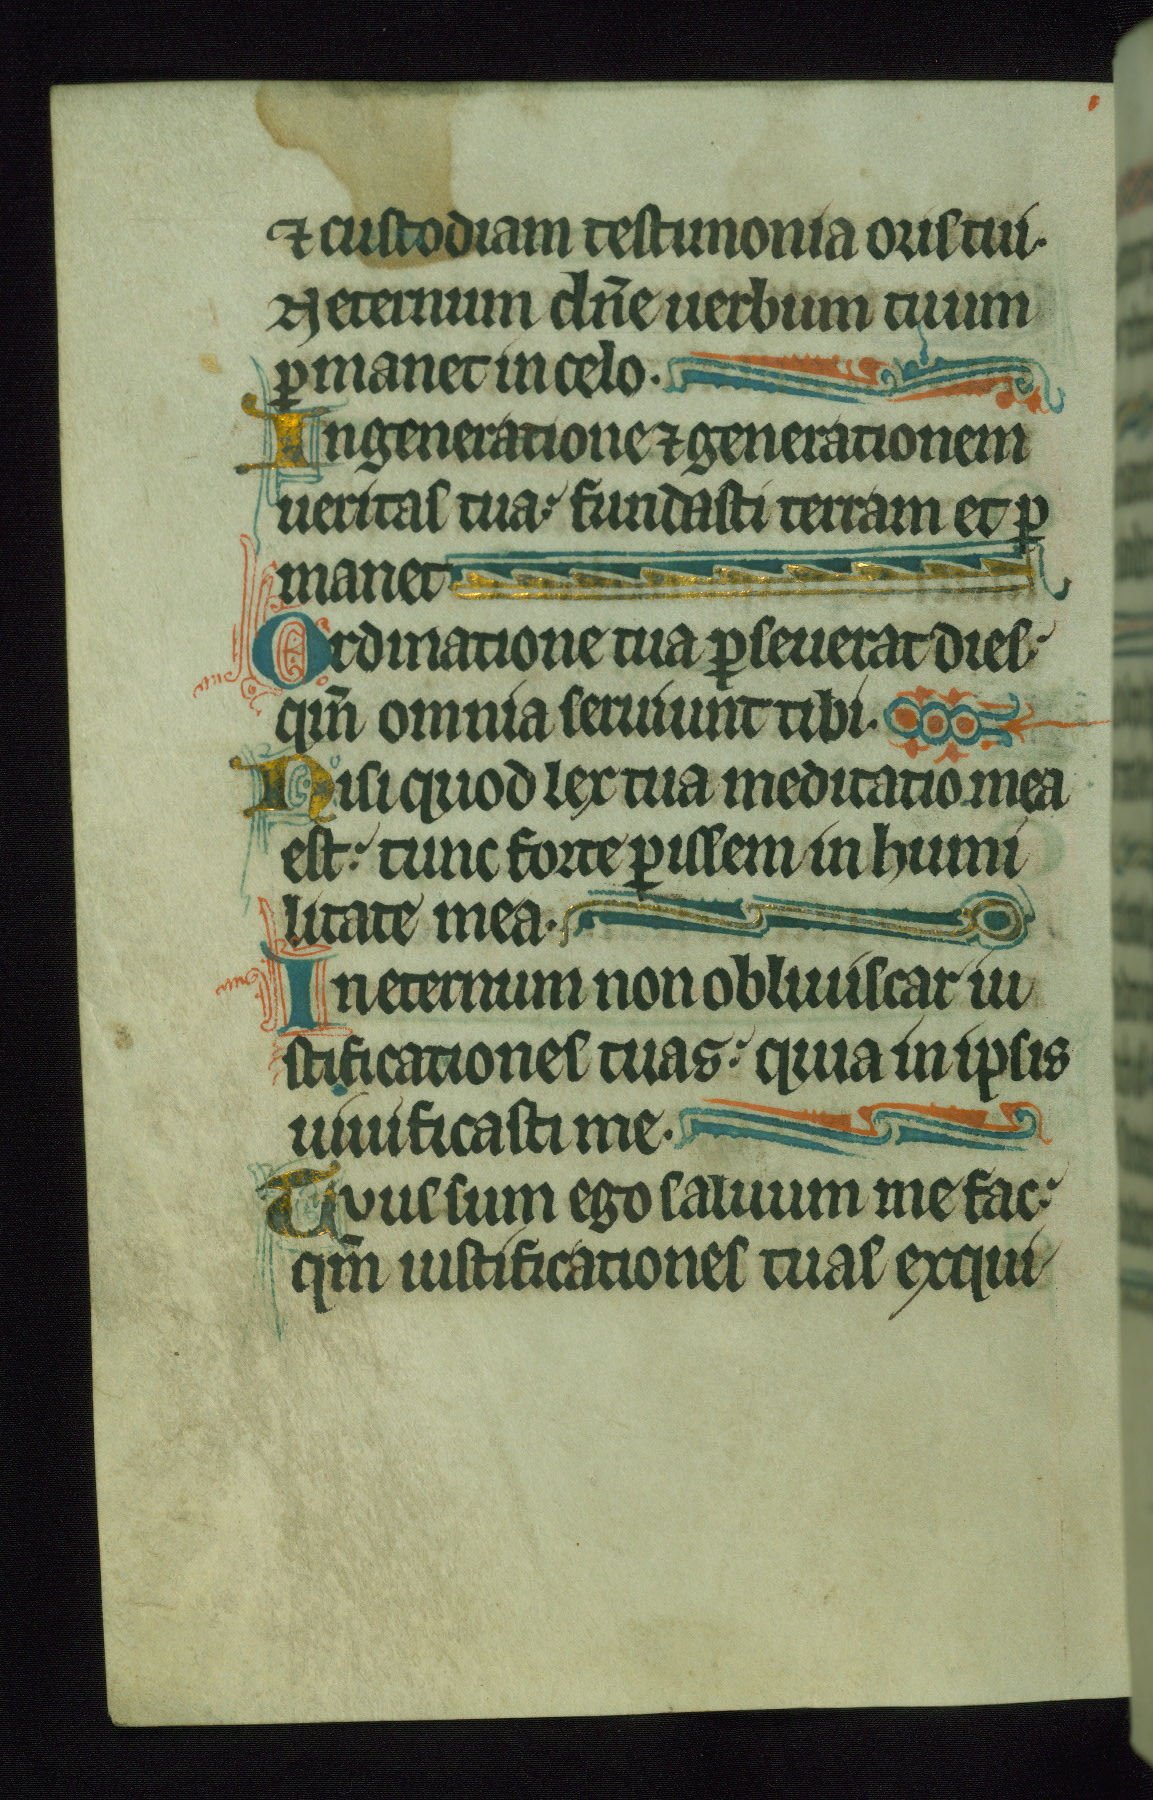 ⁊ custodiam testimonia oris tui.
In eternum dn̄e uerbum tuum
ꝑmanet in celo.
In generatione ⁊ generationem
ueritas tua: fundasti terram et ꝑ
manet
Ordinatione tua ꝑseuerat dies:
qm̄ omnia seruiunt tibi.
Nisi quod lex tua meditatio mea
est: tunc forte ꝑissem in humi
litate mea.
In eternum non obliuiscar iu
stificationes tuas: quia in ipsis
uiuificasti me.
Tuus sum ego saluum me fac:
qm̄ iustificationes tuas exqui